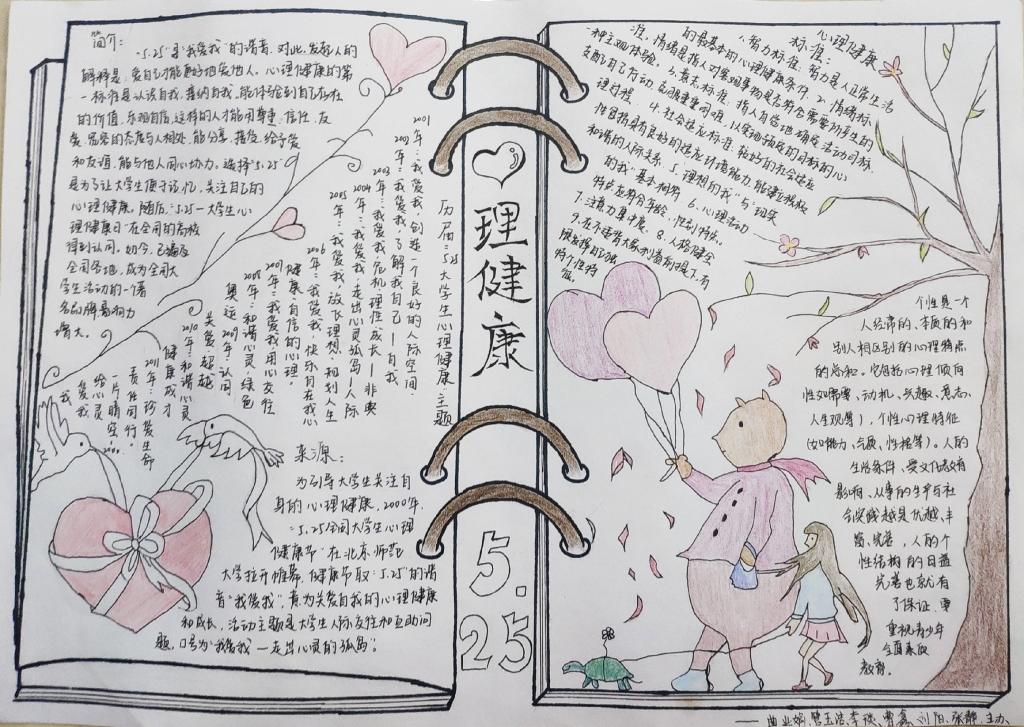 简介:
"5.25"是"我爱我"的谐音,对此,发起人的
解释是,爱自己才能更好地爱他人。心理健康的第
一标准是认识自我,接纳自我,能体验到自己存在
的价值,乐观自信,这样的人才能用尊重、信任、友
爱、宽容的态度与人相处,能分享、接受、给予爱
和友谊,能与他人同心协力。选择5.25
是为了让大学生便于记忆,关注自己的
心理健康。随后,5.25—大学生心
理健康日"在全国的高校
得到认同,如今,已遍及
全国各地,成为全国大
学生活动的一个著
名品牌影响力
增大。
历届5.25大学生心理健康主题
2001年:我爱我,创造一个良好的人际空间.
2002年:我爱我,了解我自己—自我.
2003年:我爱我,危机理性成长—非典
2004年:我爱我,走出心灵孤岛—人际
2005年:我爱我,放飞理想,规划人生
2006年:我爱我,快乐自在我心
2007年:我爱我,用心交往
健康,自信的心理.
2008年:和谐心灵,绿色
奥运
2009年:认同
关爱·超越
2010年:和谐心灵
健康成才
2011年:珍爱生命
责任同行。
一片晴空.
给心灵
爱我
我
来源:
为引导大学生关注自
身的心理健康,2000年,
"5.25全国大学生心理
健康节"在北京师范
大学拉开帷幕,健康节取"5.25"的谐
音"我爱我",意为关爱自我的心理健康
和成长,活动主题是大学生人际交往和互助问
题,口号为"我爱我—走出心灵的孤岛"
理健康
5.
25
心理健康
标准:
1.智力标准,智力是人正常生活
的最基本的心理健康条件 2.情绪标
准,情绪是指人对客观事物是否符合需要所产生的
一种主观体验。3.意志标准,指人自觉地确定活动目标,
支配自己行动,克服重重困难,以实现预定的目标的心
理过程. 4.社会适应标准,较好的社会适应
性包括具有良好的适度计情能力,能建立积极
和谐的人际关系 5.理想的我"与"现实
的我"基本相符 6.心理活动
特点应符合年龄、性别特点。
7.注意力集中度 8.人格健全
9.在不违背大家利益的前提下,有
限度地
特个性特
征。
个性是一个
人经常的、本质的和
别人相区别的心理特点
的总和。它包括心理倾向
性如需要,动机、兴趣、意志、
人生观等),个性心理特征
(如能力、气质、性格等)。人的
生活条件、受文化教育
影响、从事的生产与社
会实践越是优越、丰
富、完善,人的个
性结构的日益
完善也就有
了保证,要
重视青少年
全面素质
教育。